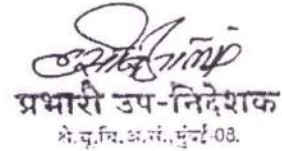 प्रभारी उप-निदेशक
क्षे.यू.चि.अ.सं.,मुंबई-08.